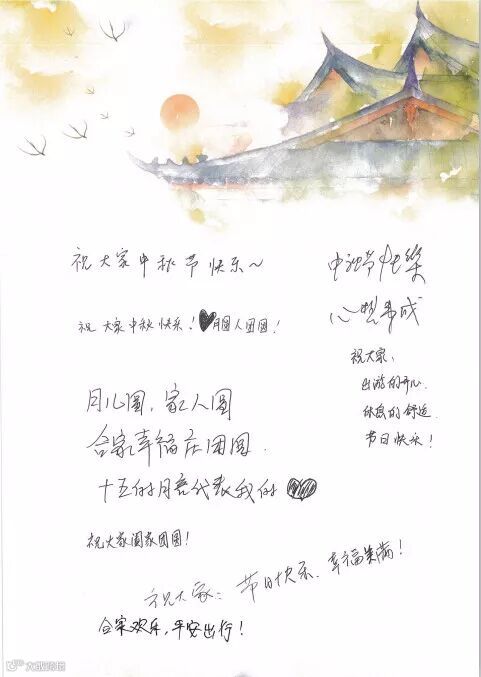 祝大家中秋节快乐~
中秋节快樂
心想事成
祝大家中秋快乐!月圆人团圆!
祝大家:
出游的开心
休息的舒适
节日快乐!
月儿圆,家人圆
合家幸福庄团圆.
十五的月亮代表我的
祝大家阖家团圆!
祝大家:节日快乐、幸福美满!
合家欢乐,平安出行!